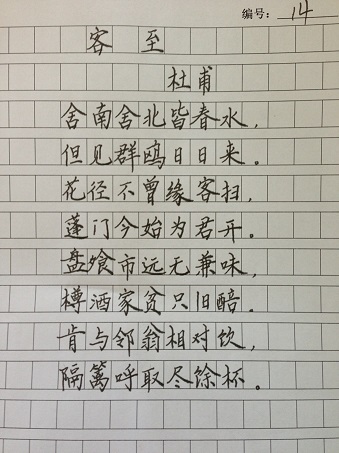 编号： 14
客至
杜甫
舍南舍北皆春水，
但见群鸥日日来。
花径不曾缘客扫，
蓬门今始为君开。
盘飧市远无兼味，
樽酒家贫只旧醅。
肯与邻翁相对饮，
隔篱呼取尽馀杯。